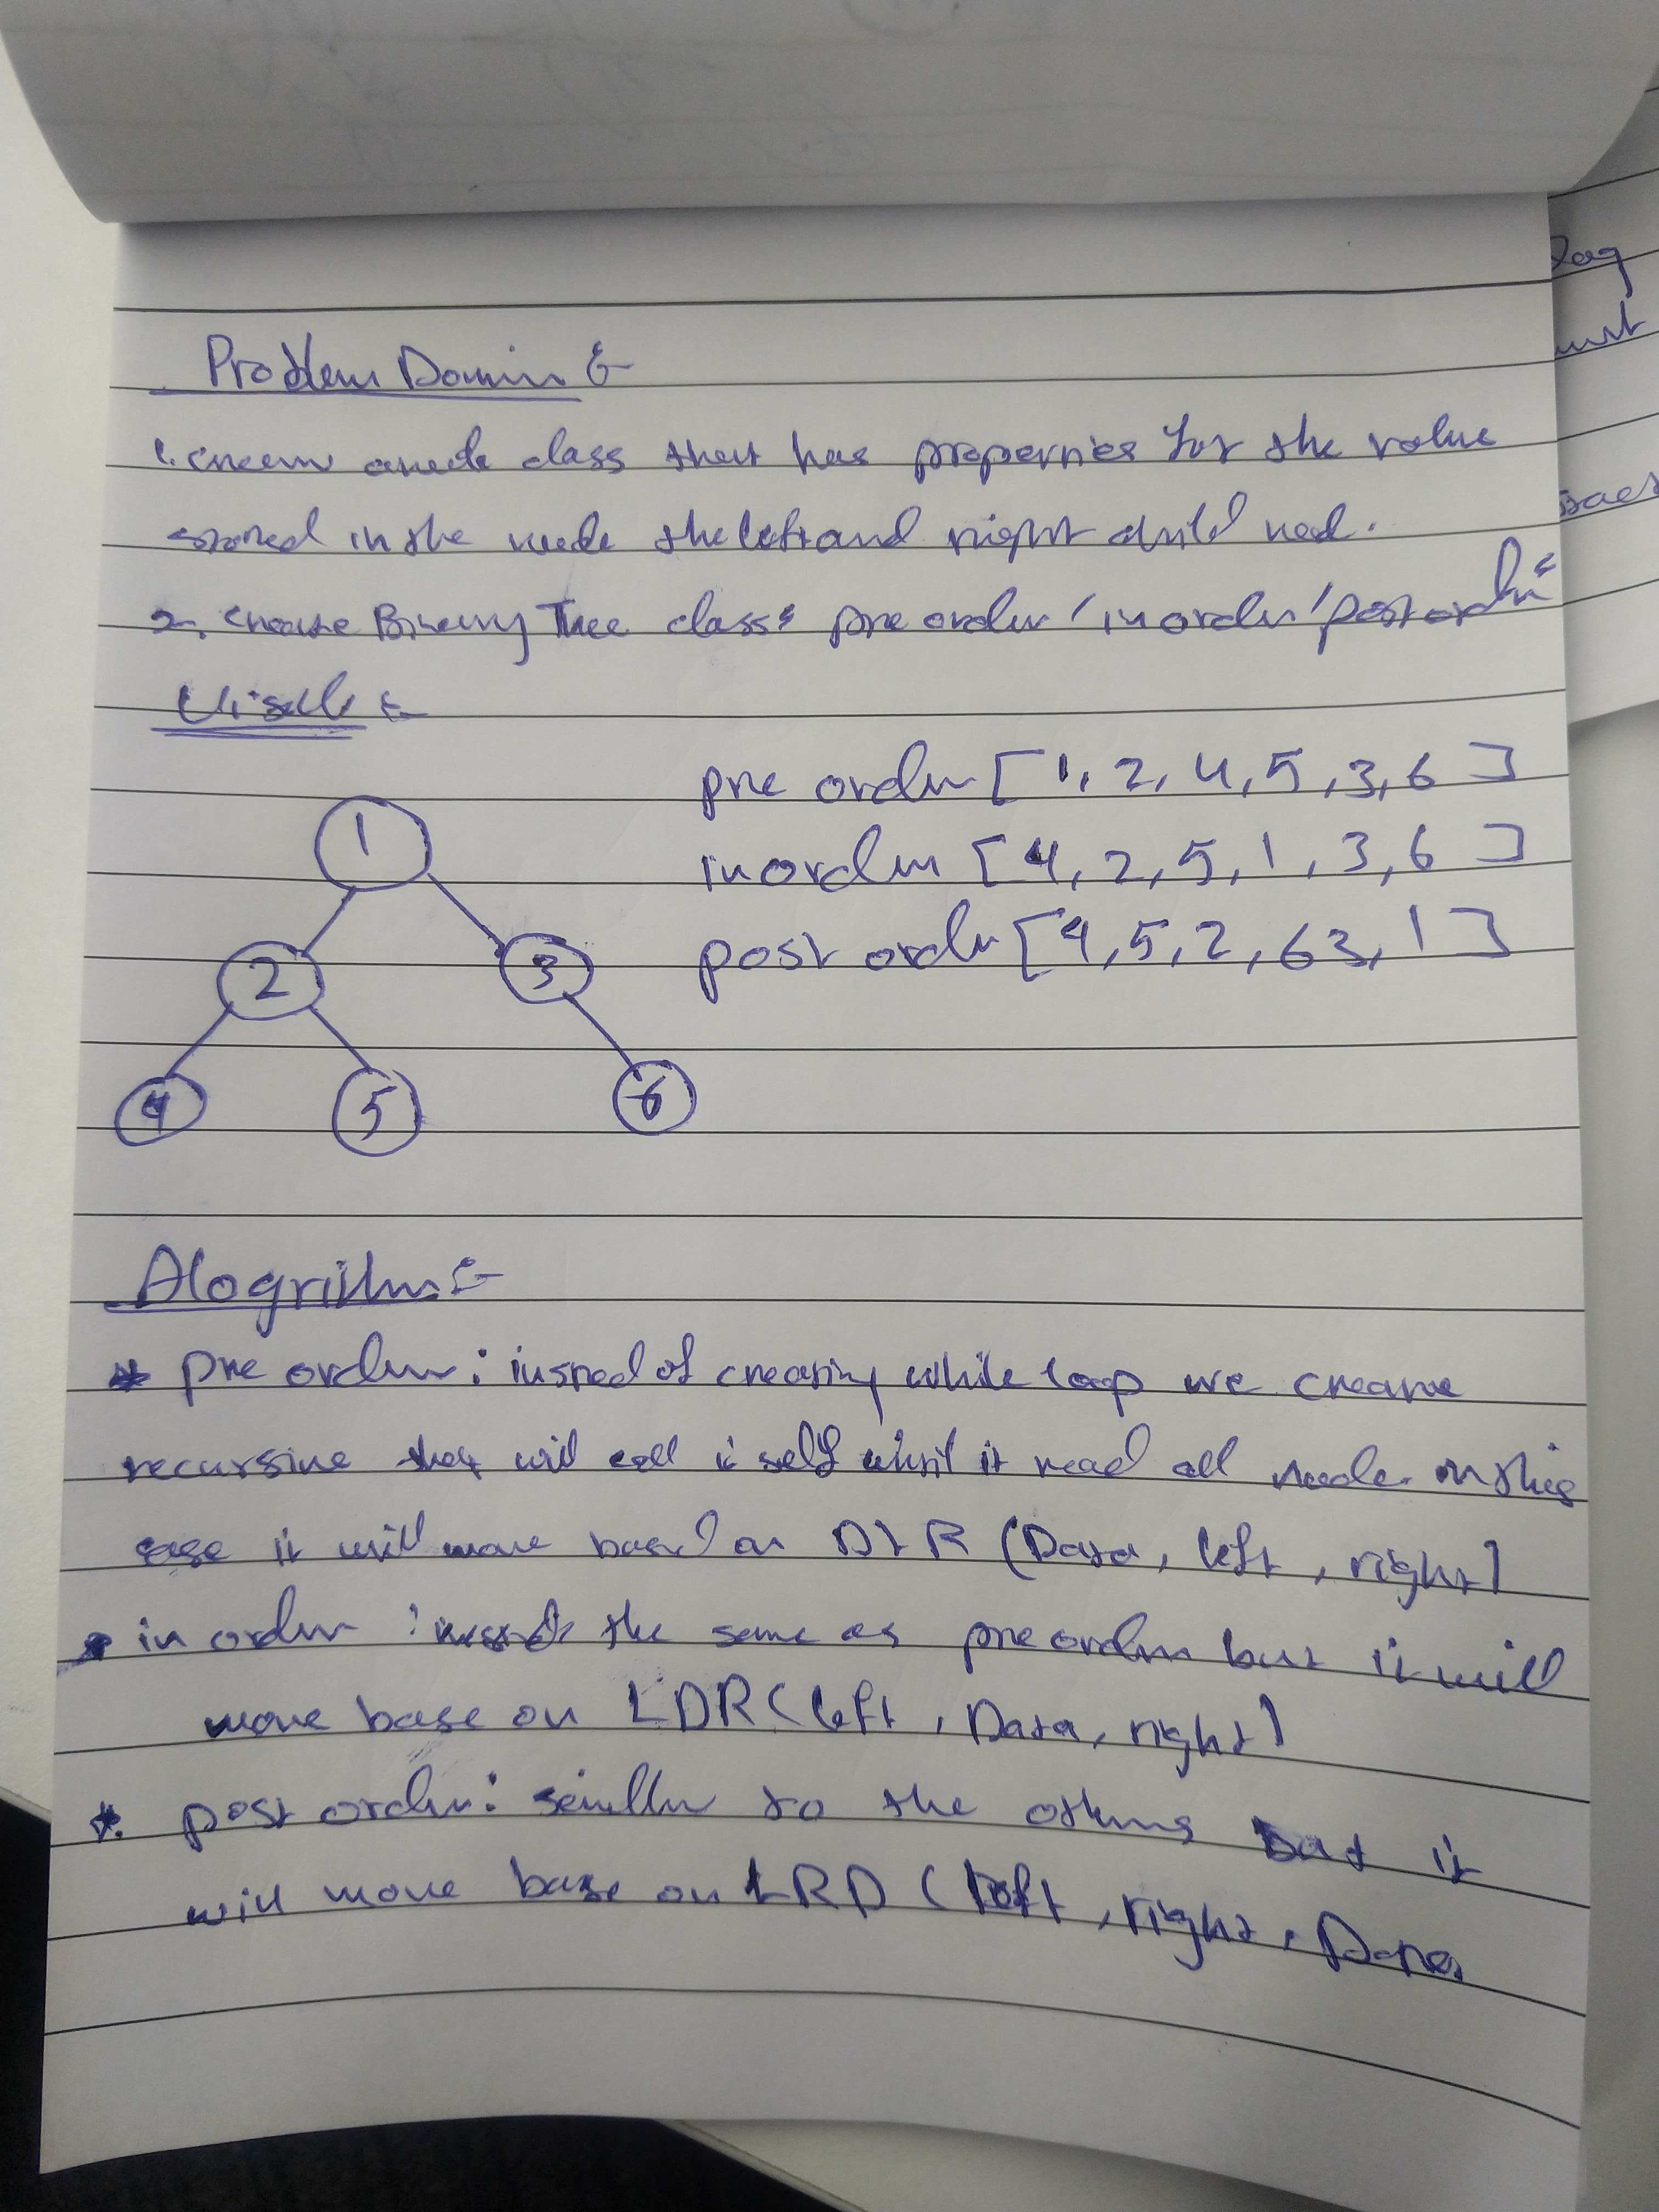 Problem Domin :-
1. create a node class that has properties for the value
stored in the node the left and right child nod.
2. create Binary Tree class: pre order / in order / post order
Visul :-
pre order [ 1, 2, 4, 5, 3, 6 ]
in order [ 4, 2, 5, 1, 3, 6 ]
post order [ 4, 5, 2, 6 3, 1 ]
1
2 3
4 5 6
Alogrithm :-
* pre order : insted of creating while loop we create
recursive that will call it self until it read all node. in this
case it will move based on DLR (Data, left, right)
* in order : the same as pre order but it will
move base on LDR (left, Data, right)
* post order : similler to the others but it
will move base on LRD (left, right, Data